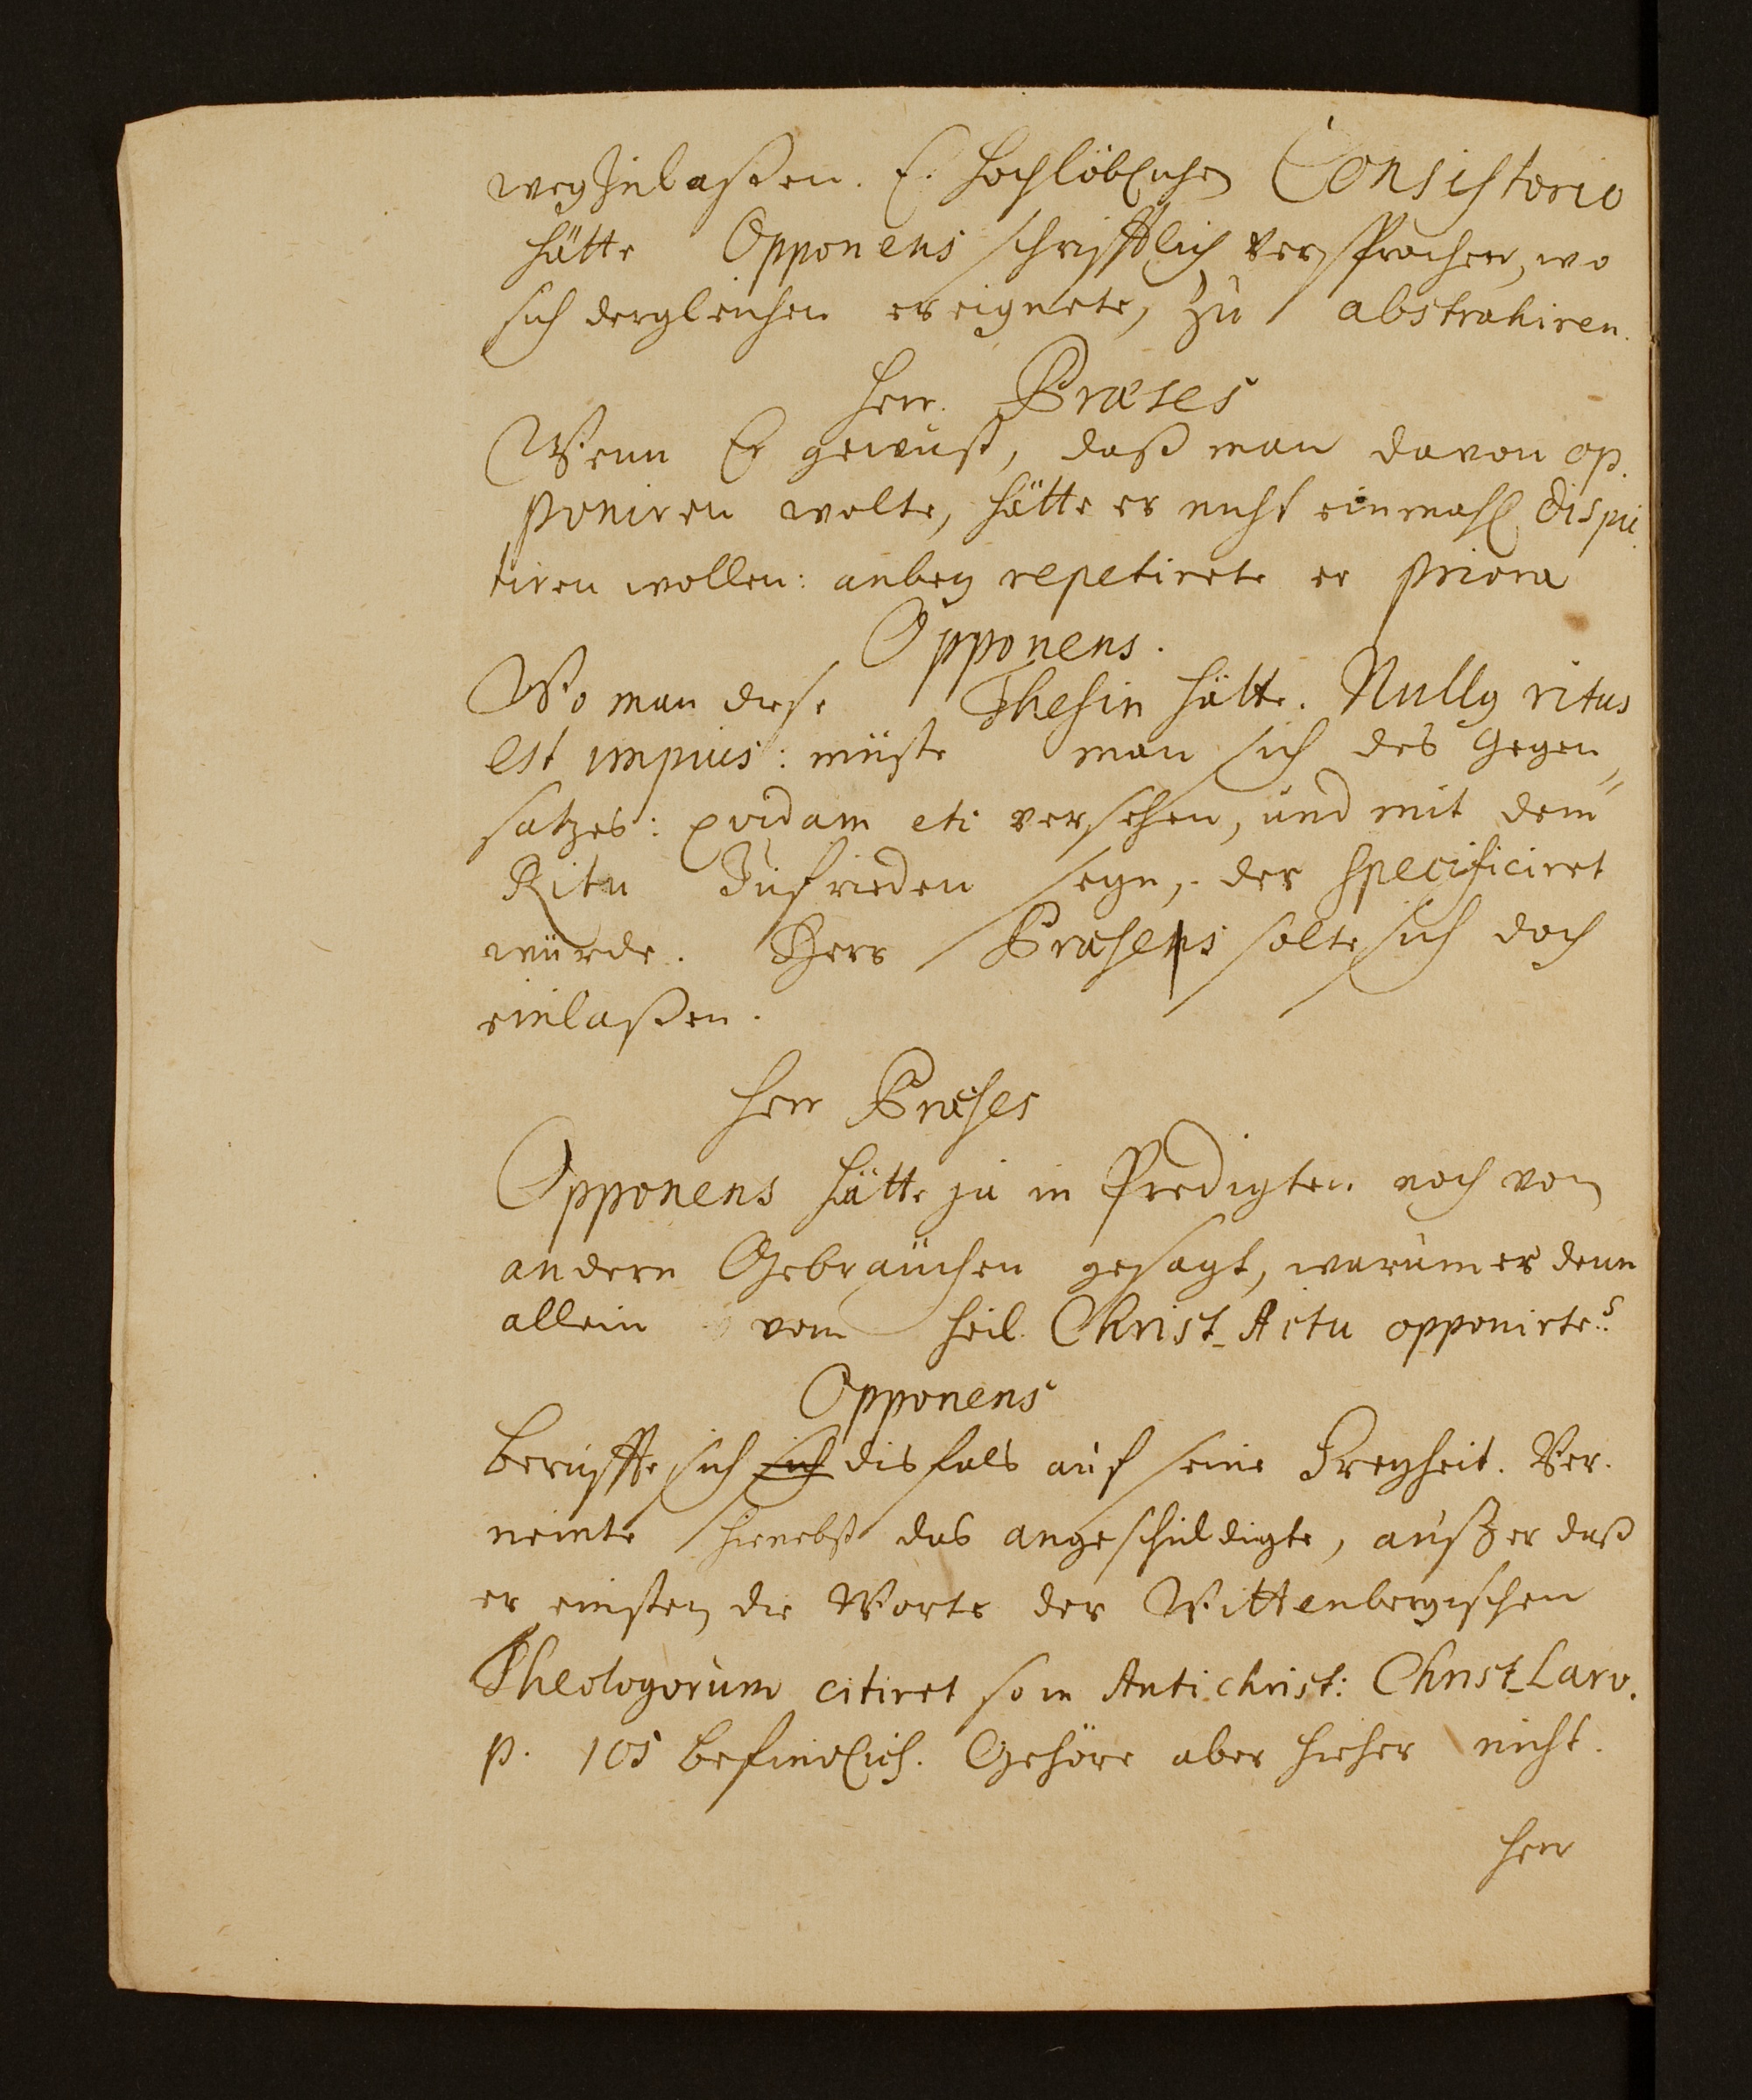 wegzulaßen. E. Hochlöblichen Consistorio
hätte Opponens schrifftlich versprochen, wo
sich dergleichen ereignete, zu abstrahiren.
Herr. Præses
Wenn Er gewust, daß man davon op
poniren wolte, hätte er nicht einmahl dispu
tiren wollen: anbey repetirete er priora
Opponens.
Wo man diese Thesin hätte. Nullus ritus
est impius: müste man sich des Gegen
satzes: quidam etc versehen, und mit dem
Ritu zufrieden seyn, der specificiret
würde. Herr Præses solte sich doch
einlaßen.
Herr Præses
Opponens hätte ja in Predigten noch von
andern Gebräuchen gesagt, warum er denn
allein vom heil. Christ-Actu opponirte?
Opponens
beruffte sich sich disfals auf seine Freyheit. Ver
neinte hienebst das angeschuldigte, außer daß
er einsten die Worte der Wittenbergischen
Theologorum citiret so in Antichrist: Christ-Larv.
p. 105 befindlich. Gehöre aber hieher nicht.
Herr